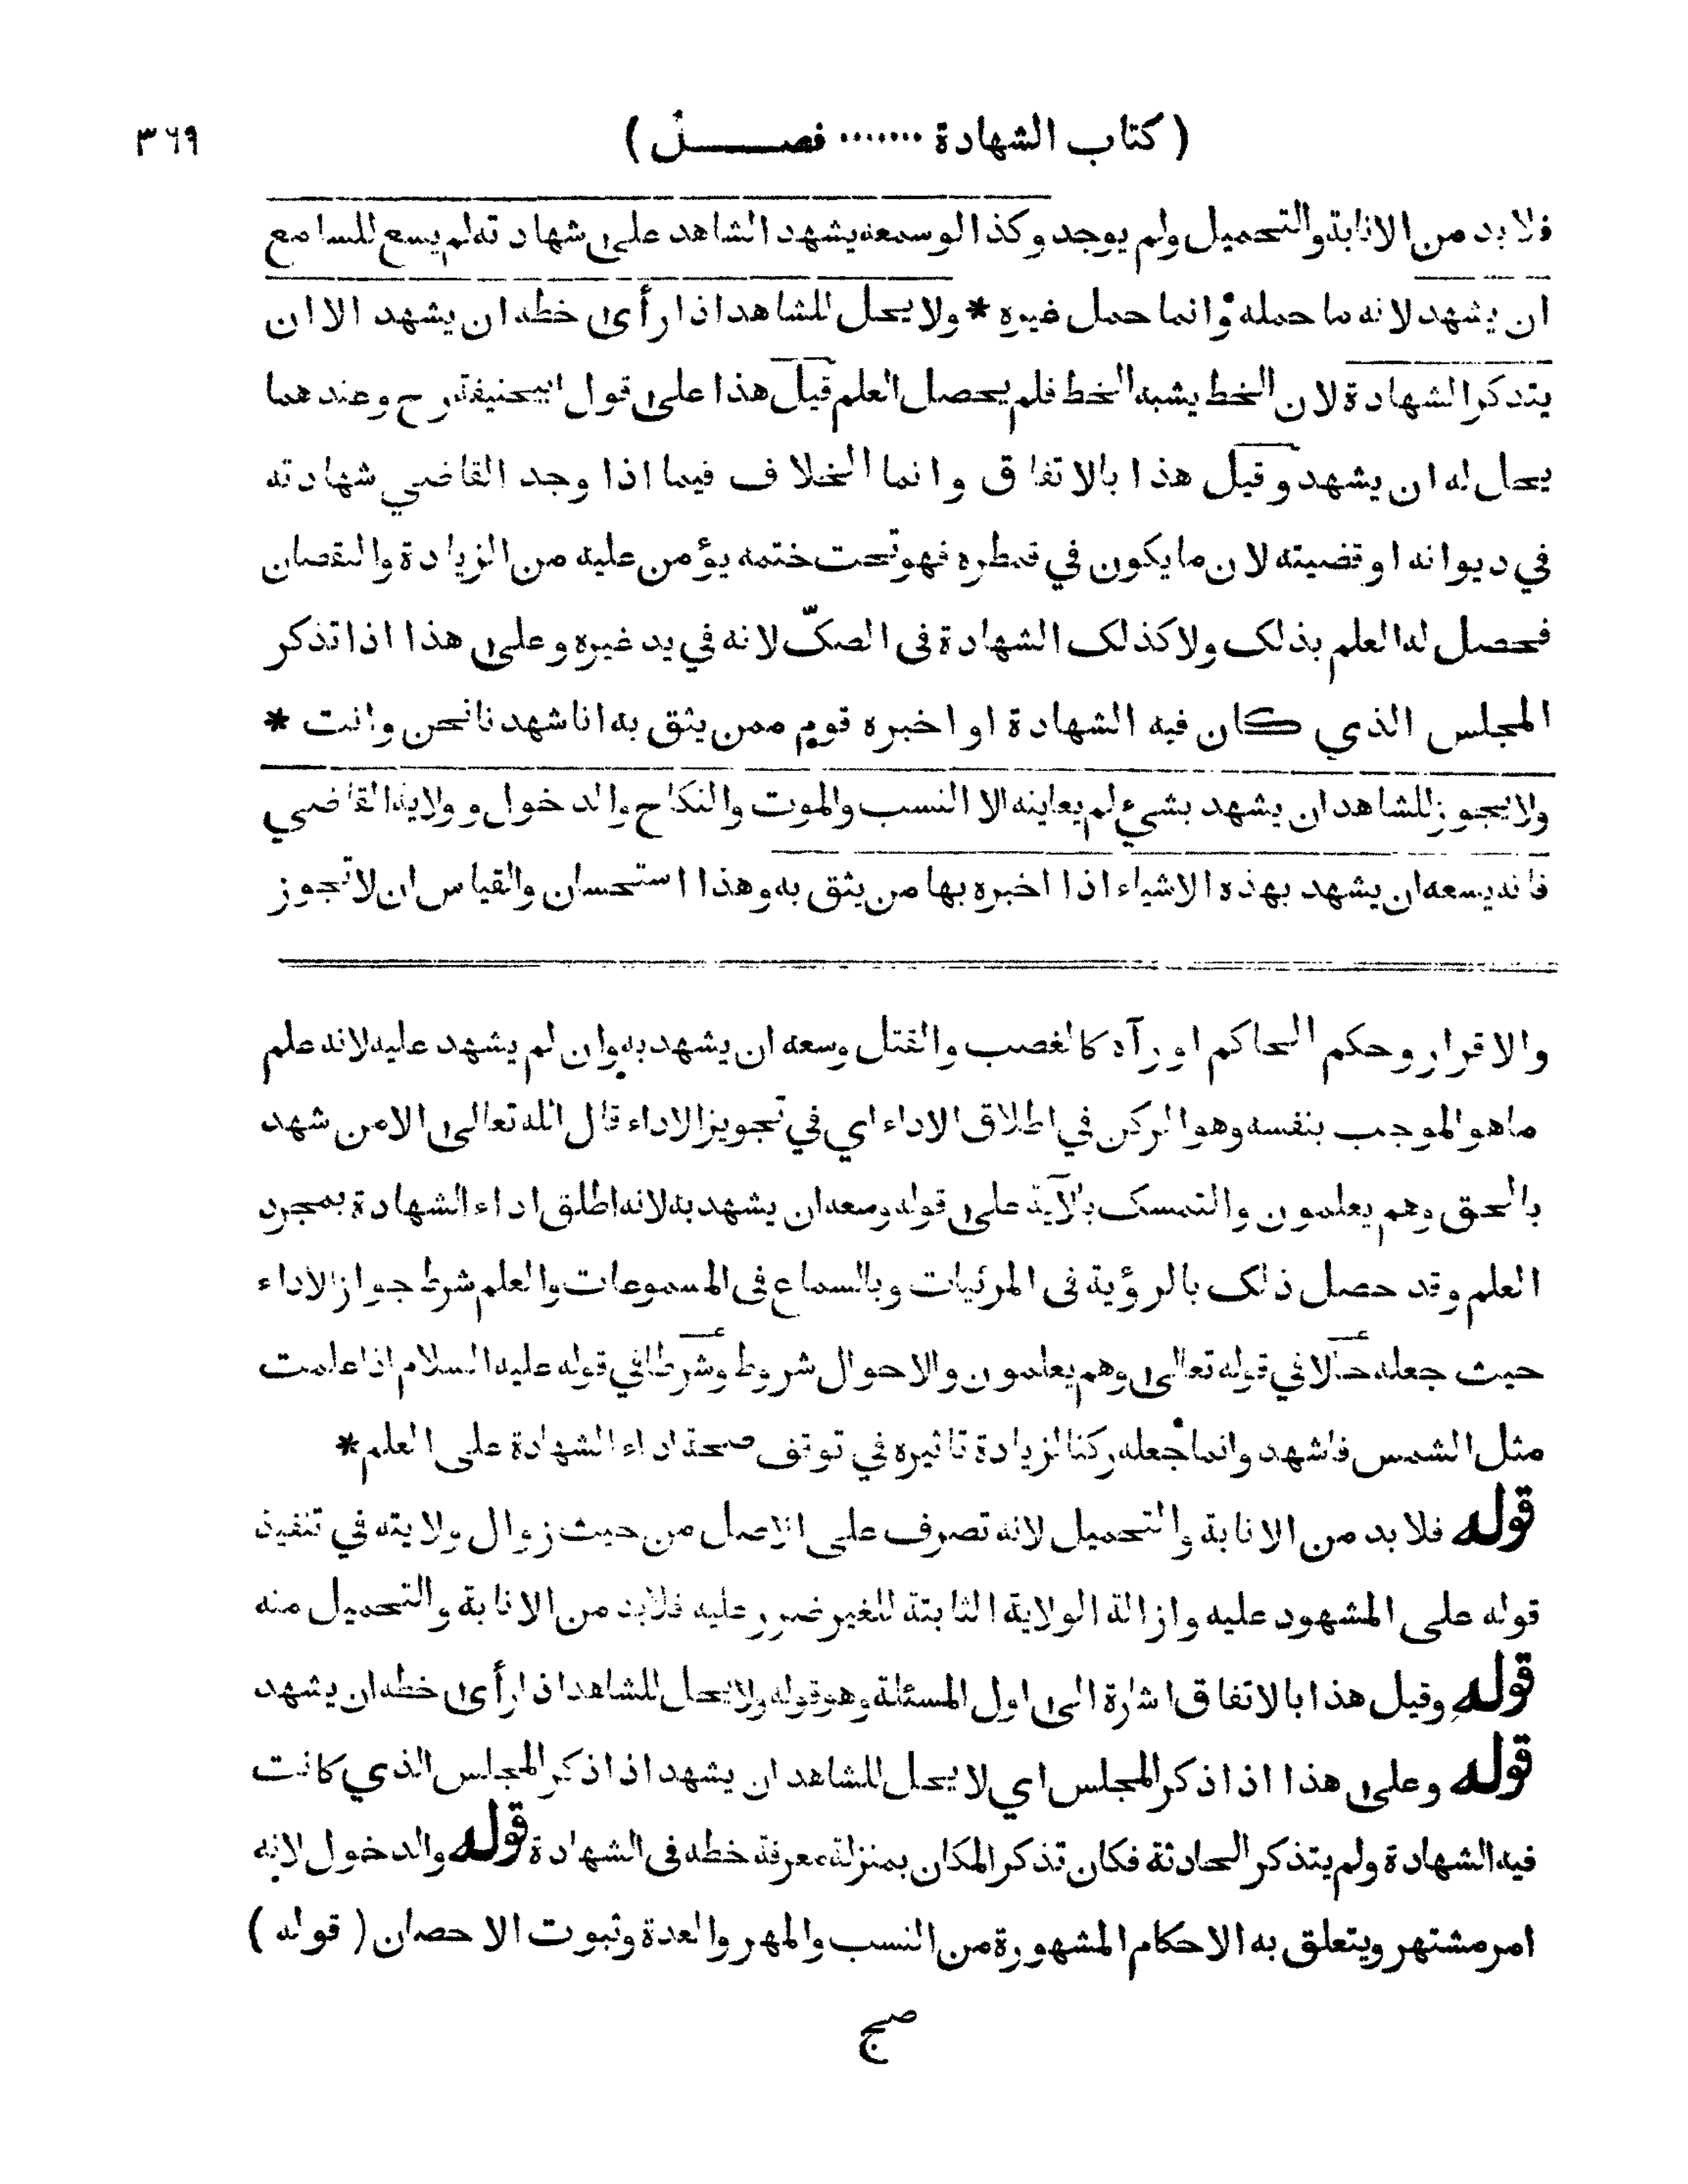 ( كتاب الشهادة ....... فصــــل ) ٣٦٩
فلا بد من الانابة والتحميل ولم يوجد وكذا لوسمعه يشهد الشاهد على شهادته لم يسع للسامع
ان يشهد لانه ما حمله وانما حمل غيره * ولا يحل للشاهد اذا رأى خطه ان يشهد الا ان
يتذكر الشهادة لان الخط يشبه الخط فلم يحصل العلم قيل هذا على قول ابيحنيفة رح وعندهما
يحل له ان يشهد وقيل هذا بالاتفاق وانما الخلاف فيما اذا وجد القاضي شهادته
في ديوانه او قضيته لان ما يكون في قمطره فهو تحت ختمه يؤمن عليه من الزيادة والنقصان
فحصل له العلم بذلك ولا كذلك الشهادة فى الصكّ لانه في يد غيره وعلى هذا اذا تذكر
المجلس الذي كان فيه الشهادة او اخبره قوم ممن يثق به انا شهدنا نحن وانت *
ولا يجوز للشاهد ان يشهد بشيء لم يعاينه الا النسب والموت والنكاح والدخول وولاية القاضي
فانه يسعه ان يشهد بهذه الاشياء اذا اخبره بها من يثق به وهذا استحسان والقياس ان لا تجوز
والاقرار وحكم الحاكم او رآه كالغصب والقتل وسعه ان يشهد به وان لم يشهد عليه لانه علم
ما هو الموجب بنفسه وهو الركن في اطلاق الاداء اي في تجويز الاداء قال الله تعالى الا من شهد
بالحق وهم يعلمون والتمسك بالآية على قوله وسعه ان يشهد به لانه اطلق اداء الشهادة بمجرد
العلم وقد حصل ذلك بالرؤية فى المرئيات وبالسماع فى المسموعات والعلم شرط جواز الاداء
حيث جعله حالا في قوله تعالى وهم يعلمون والاحوال شروط وشرطا في قوله عليه السلام اذا علمت
مثل الشمس فاشهد وانما جعله ركنا لزيادة تاثيره في توقف صحة اداء الشهادة على العلم *
قوله فلا بد من الانابة والتحميل لانه تصرف على الاصل من حيث زوال ولايته في تنفيذ
قوله على المشهود عليه وازالة الولاية الثابتة للغير ضرر عليه فلا بد من الانابة والتحميل منه
قوله وقيل هذا بالاتفاق اشارة الى اول المسئلة وهو قوله ولا يحل للشاهد اذا رأى خطه ان يشهد
قوله وعلى هذا اذا ذكر المجلس اي لا يحل للشاهد ان يشهد اذا ذكر المجلس الذي كانت
فيه الشهادة ولم يتذكر الحادثة فكان تذكر المكان بمنزلة معرفة خطه فى الشهادة قوله والدخول لانه
امر مشتهر ويتعلق به الاحكام المشهورة من النسب والمهر والعدة وثبوت الاحصان ( قوله )
صح